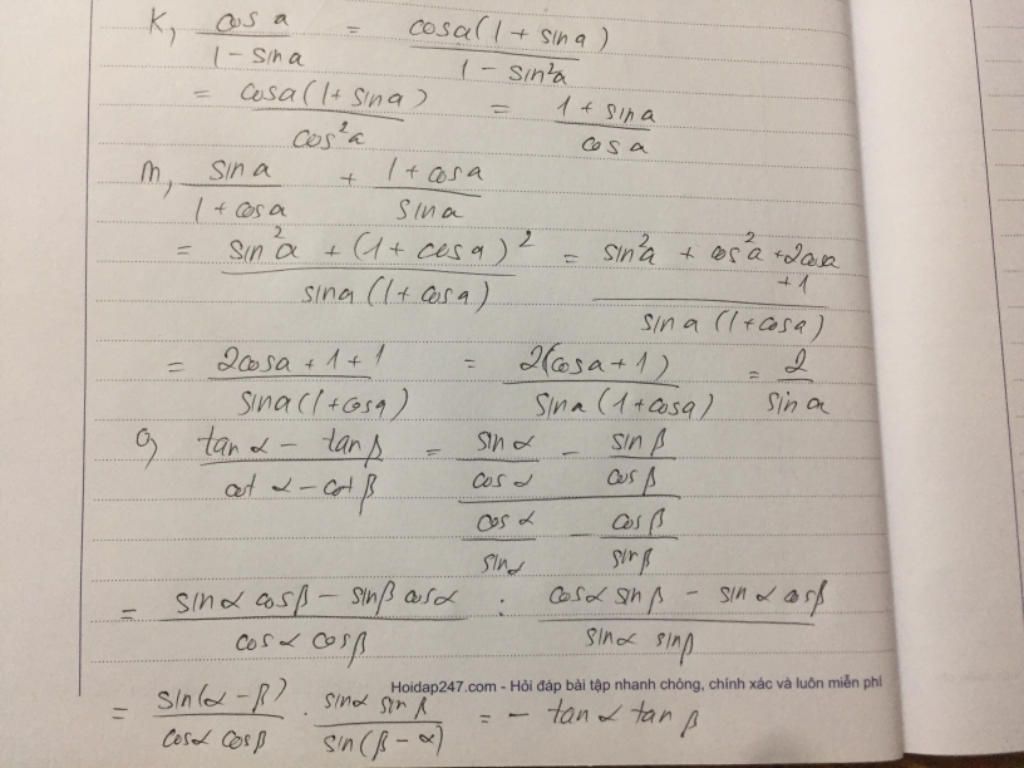 K, cos a / 1 - sin a = cosa(1 + sina) / 1 - sin²a
= cosa(1+sina) / cos²a = 1 + sina / cosa
m, sina / 1 + cosa + 1 + cosa / sina
= sin²a + (1 + cosa)² / sina(1+cosa) = sin²a + cos²a + 2cosa + 1 / sina(1+cosa)
= 2cosa + 1 + 1 / sina(1+cosa) = 2(cosa + 1) / sina(1+cosa) = 2 / sina
o, tanα - tanβ / cotα - cotβ = sinα / cosα - sinβ / cosβ / cosα / sinα - cosβ / sinβ
= sinα cosβ - sinβ cosα / cosα cosβ : cosα sinβ - sinα cosβ / sinα sinβ
Hoidap247.com - Hỏi đáp bài tập nhanh chóng, chính xác và luôn miễn phí
= sin(α - β) / cosα cosβ . sinα sinβ / sin(β - α) = - tanα tanβ